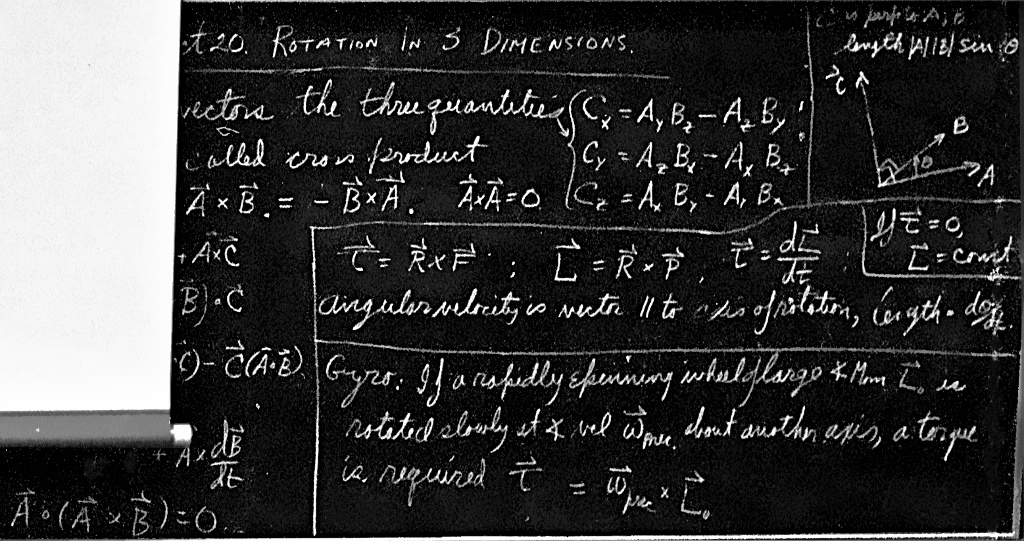 t 20. ROTATION IN 3 DIMENSIONS.
vectors the three quantities
called cross product
C_x = A_y B_z − A_z B_y
C_y = A_z B_x − A_x B_z
C_z = A_x B_y − A_y B_x
A⃗ × B⃗ = − B⃗ × A⃗. A⃗×A⃗ = 0
is perp to A, B
length |A||B| sin θ
C⃗
B
θ
A
+ A⃗×C⃗
B⃗)·C⃗
C⃗) − C⃗(A⃗·B⃗)
+ A⃗ × dB⃗/dt
A⃗·(A⃗ × B⃗) = 0
τ⃗ = R⃗ × F⃗ ; L⃗ = R⃗ × P⃗, τ⃗ = dL⃗/dt ;
If τ⃗ = 0,
L⃗ = const
angular velocity is vector || to axis of rotation, length =
Gyro: If a rapidly spinning wheel of large ∡ Mom L⃗₀ is
rotated slowly at ∡ vel ω⃗_prec. about another axis, a torque
is required τ⃗ = ω⃗_prec × L⃗₀